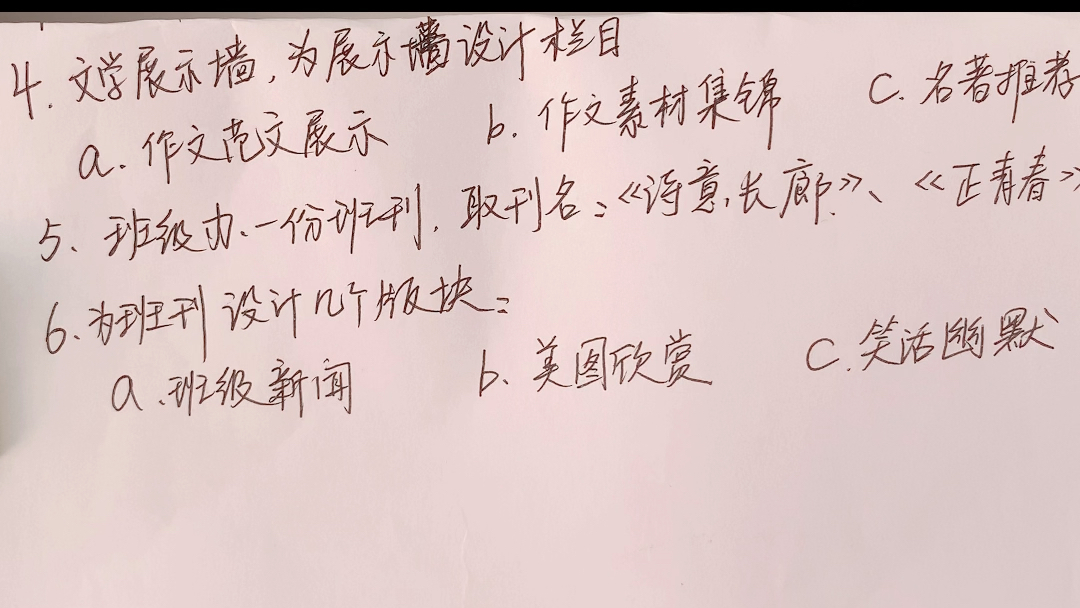 4. 文学展示墙,为展示墙设计栏目
a. 作文范文展示 b. 作文素材集锦 c. 名著推荐
5、班级办一份班刊,取刊名:《诗意长廊》、《正青春》
6、为班刊设计几个版块:
a、班级新闻 b、美图欣赏 c.笑活幽默